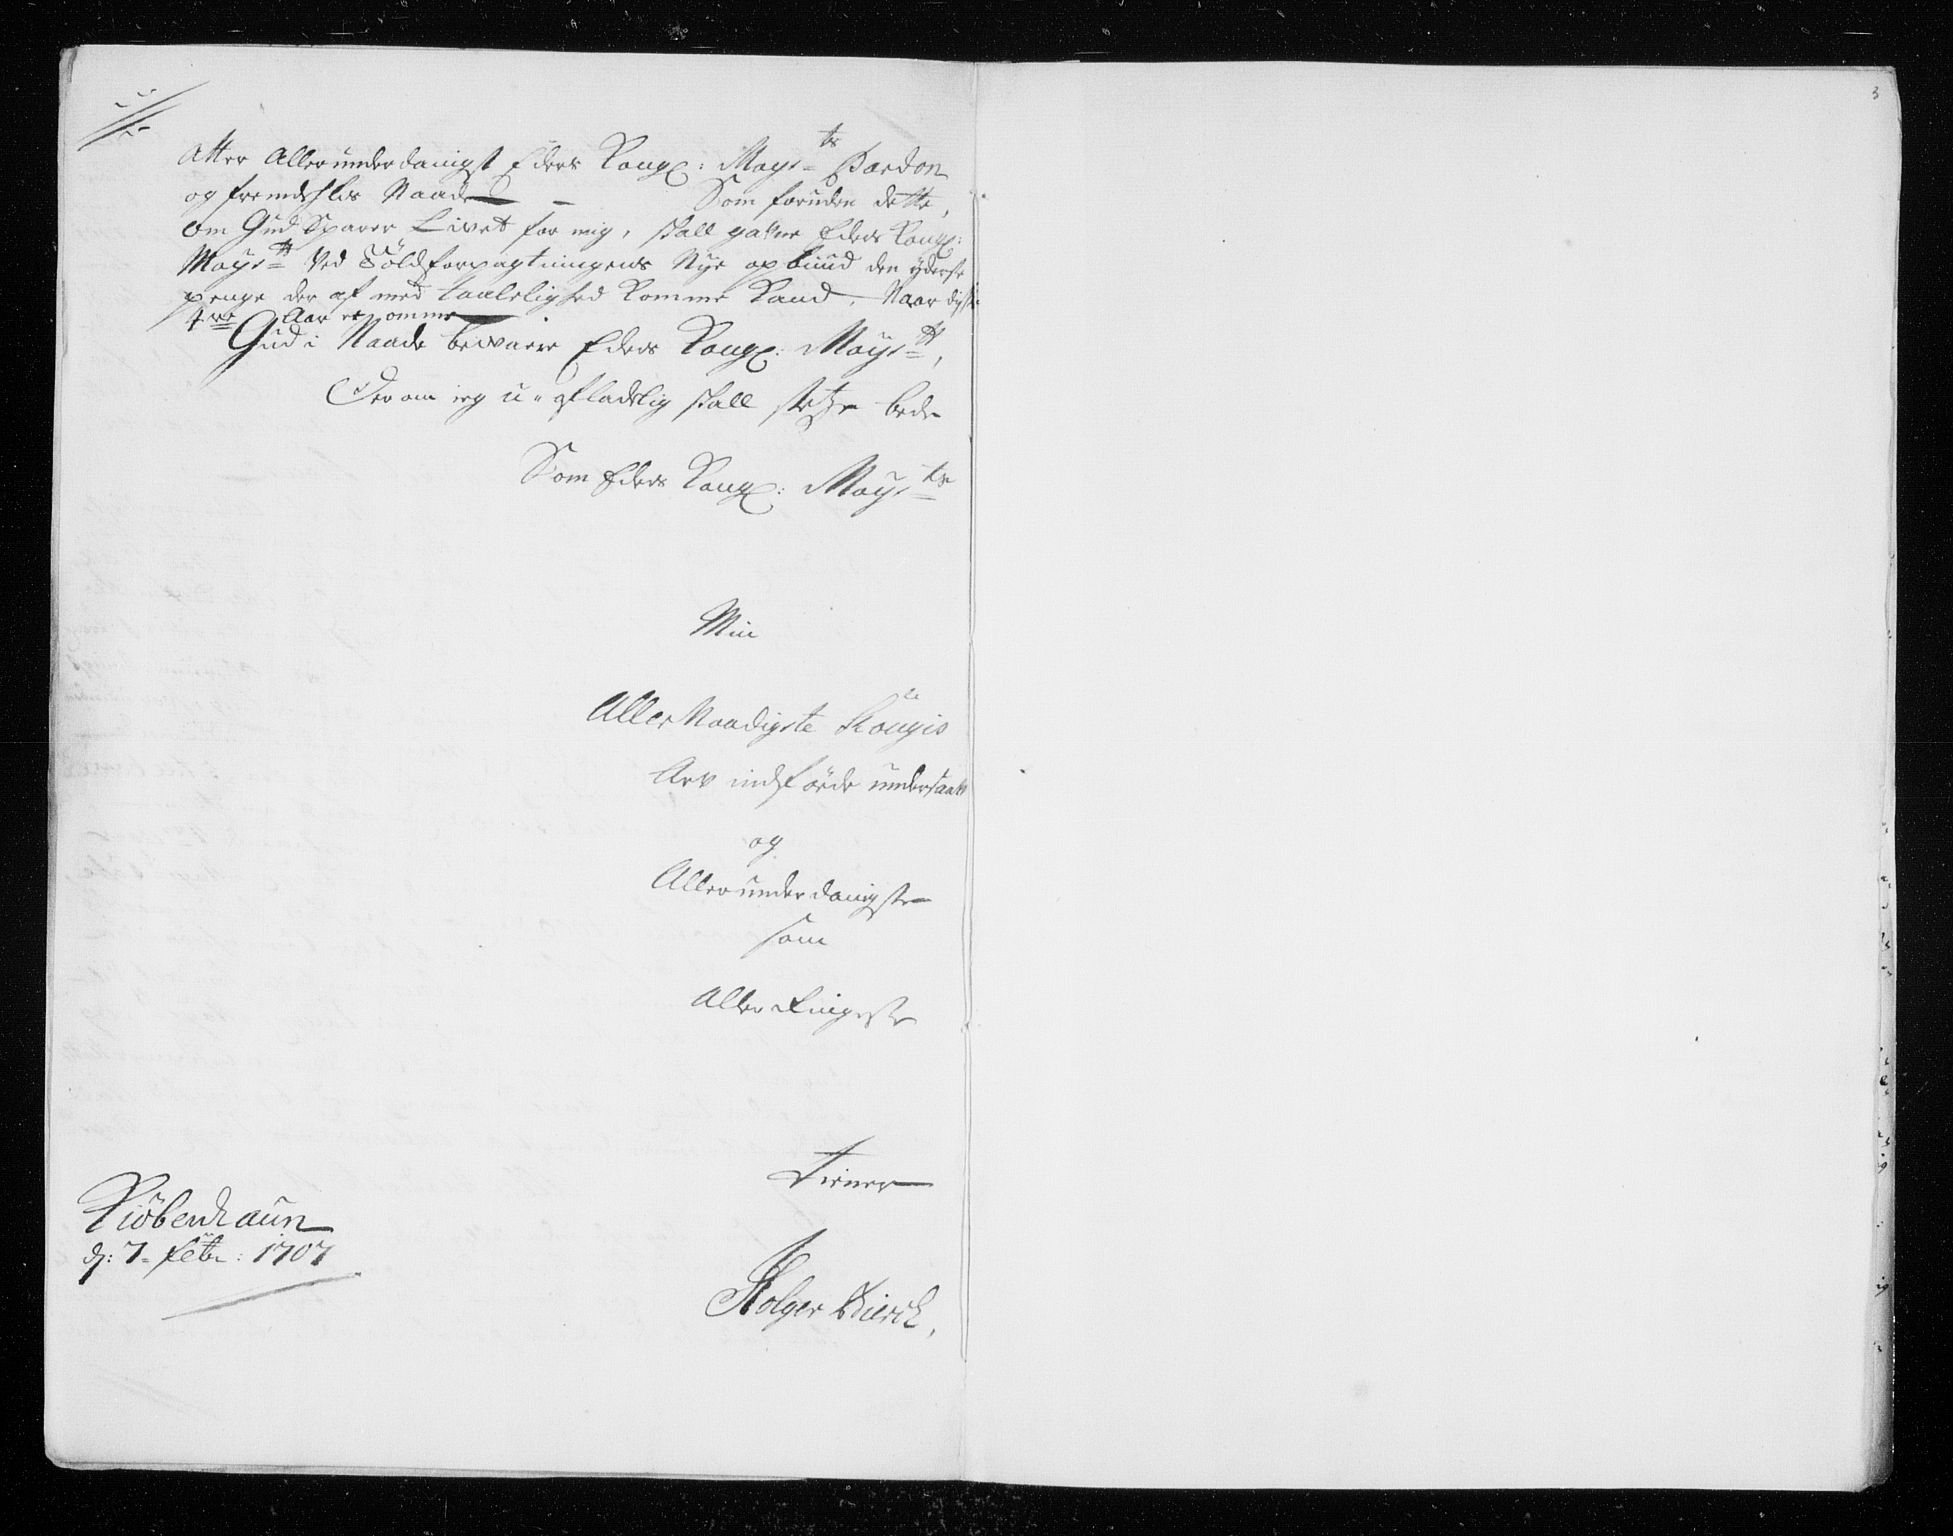 Atter Allerunderdanigst Eders Kongl: Mayts Pardon
og fremdehlis Naade Som foruden dette,
om Gud Sparer Livet for mig, skall gavne Eders Kongl:
Mayt Ved Toldforpagtningens Nye opbuud den yderste
penge der af med taalelighed komme kand, Naar disse
4re Aar er omme
Gud i Naade bewaere Eders Kongl: Mayt,
Der om ieg u-afladelig skall stetze bede
Som Eders Kongl: Mayts
Min
Aller Naadigste Kongis
Arv indförde undersaatt
og
Allerunderdanigste
som
Aller Ringeste
Tiener
Kiöbenhaun
d: 7 Febr: 1707
Holger
3